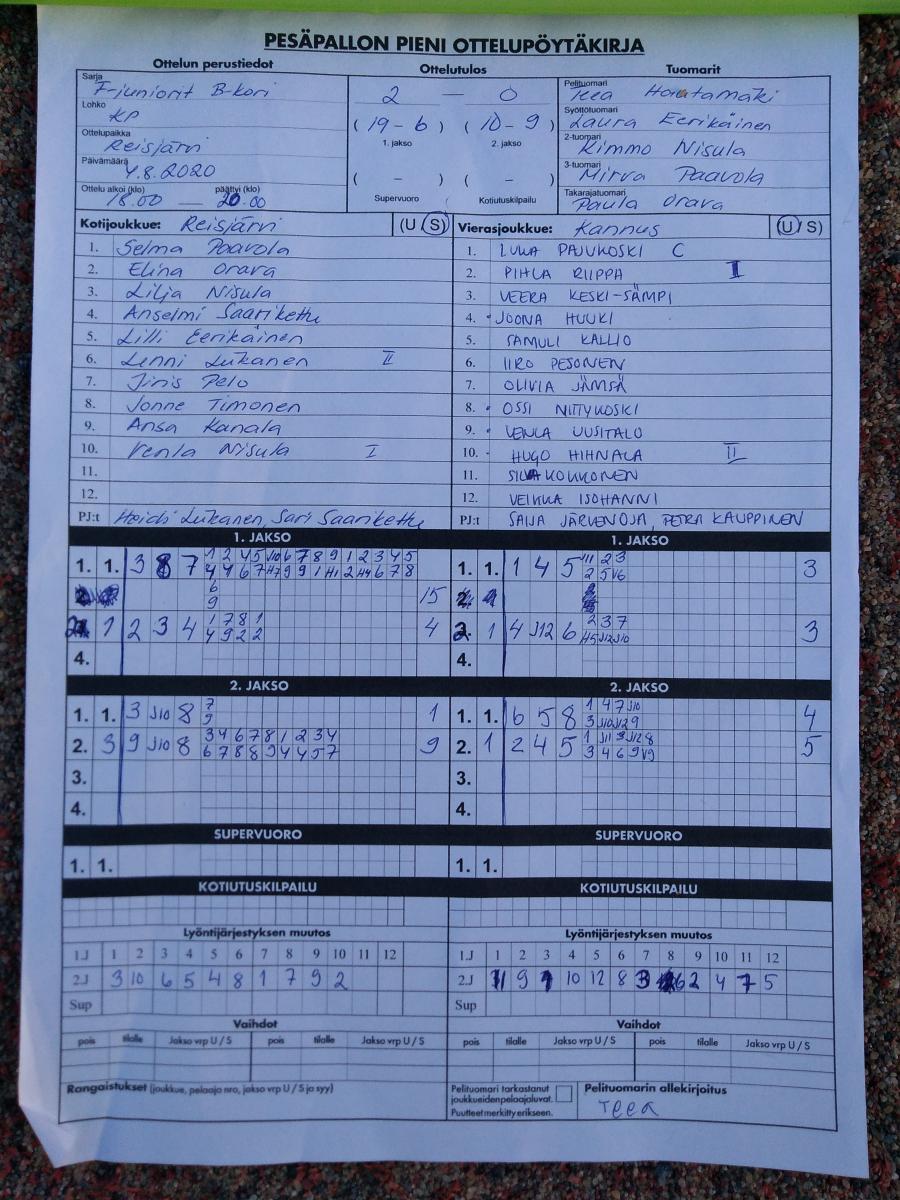 PESÄPALLON PIENI OTTELUPÖYTÄKIRJA
Ottelun perustiedot Ottelutulos Tuomarit
Sarja F-juniorit B-kori
Lohko KP
Ottelupaikka Reisjärvi
Päivämäärä 4.8.2020
Ottelu alkoi (klo) 18.00 — päättyi (klo) 20.00
2 — 0
(19-6) (10-9)
1. jakso 2. jakso
( - ) ( - )
Supervuoro Kotiutuskilpailu
Pelituomari Teea Hautamäki
Syöttötuomari Laura Eerikäinen
2-tuomari Kimmo Nisula
3-tuomari Mirva Paavola
Takarajatuomari Paula Orava
Kotijoukkue: Reisjärvi (U/S)
1. Selma Paavola
2. Elina Orava
3. Lilja Nisula
4. Anselmi Saarikettu
5. Lilli Eerikäinen
6. Lenni Liikanen II
7. Jiris Pelo
8. Jonne Timonen
9. Ansa Kanala
10. Venla Nisula I
11.
12.
PJ:t Heidi Liikanen, Sari Saarikettu
Vierasjoukkue: Kannus (U/S)
1. LUKA PAJUKOSKI C
2. PIHLA RIIPPA I
3. VEERA KESKI-SÄMPI
4. JOONA HUUKI
5. SAMULI KALLIO
6. IIRO PESONEN
7. OLIVIA JÄMSÄ
8. OSSI NIITYKOSKI
9. VENLA UUSITALO
10. HUGO HIHNALA II
11. KOKKONEN
12. VEIKKA ISOHANNI
PJ:t SAIJA JÄRVENOJA, PETRA KAUPPINEN
1. JAKSO
1. 1. 3 8 7 1 2 4 5 J10 6 7 8 9 1 2 3 4 5
4 4 6 7 H7 9 9 1 H1 2 H4 6 7 8
6
9 15
1 2 3 4 1 7 8 1
4 9 2 2 4
4.
1. JAKSO
1. 1. 1 4 5 J11 2 3
2 5 V6 3
2. 1 4 J12 6 2 3 7
H5 J12 J10 3
4.
2. JAKSO
1. 1. 3 J10 8 7
9 1
2. 3 9 J10 8 3 4 6 7 8 1 2 3 4
6 7 8 8 9 4 4 5 7 9
3.
4.
2. JAKSO
1. 1. 6 5 8 1 4 7 J10
3 J10 J12 9 4
2. 1 2 4 5 1 J11 3 J12 8
3 4 6 9 V9 5
3.
4.
SUPERVUORO SUPERVUORO
1. 1. 1. 1.
KOTIUTUSKILPAILU KOTIUTUSKILPAILU
Lyöntijärjestyksen muutos
1.J 1 2 3 4 5 6 7 8 9 10 11 12
2.J 3 10 6 5 4 8 1 7 9 2
Sup
Lyöntijärjestyksen muutos
1.J 1 2 3 4 5 6 7 8 9 10 11 12
2.J 11 9 1 10 12 8 3 6 2 4 7 5
Sup
Vaihdot Vaihdot
pois tilalle Jakso vrp U / S pois tilalle Jakso vrp U / S
pois tilalle Jakso vrp U / S pois tilalle Jakso vrp U / S
Rangaistukset (joukkue, pelaaja nro, jakso vrp U / S ja syy)
Pelituomari tarkastanut
joukkueiden pelaajaluvat.
Puutteet merkitty erikseen.
Pelituomarin allekirjoitus
Teea